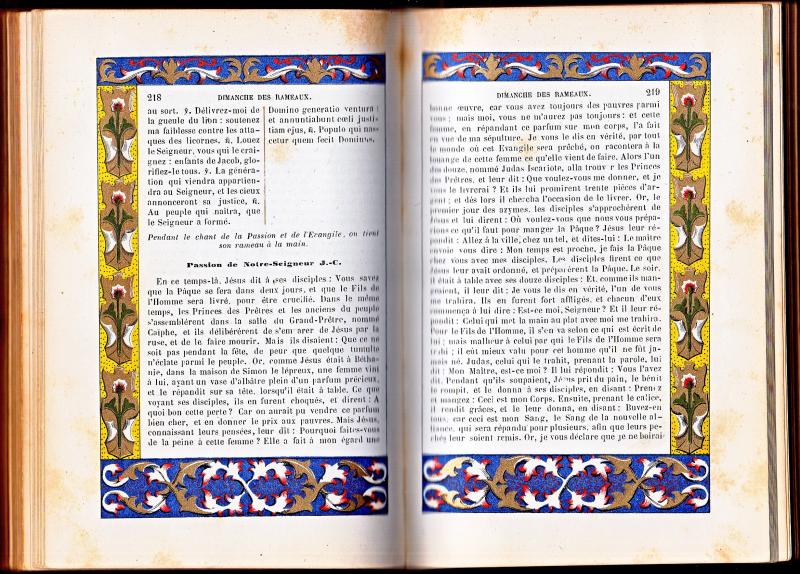 218 DIMANCHE DES RAMEAUX.
au sort. ℣. Délivrez-moi de
la gueule du lion : soutenez
ma faiblesse contre les atta-
ques des licornes. ℟. Louez
le Seigneur, vous qui le crai-
gnez : enfants de Jacob, glo-
rifiez-le tous. ℣. La généra-
tion qui viendra appartien-
dra au Seigneur, et les cieux
annonceront sa justice, ℟.
Au peuple qui naîtra, que
le Seigneur a formé.
Domino generatio ventura :
et annuntiabunt cœli justi-
tiam ejus, ℟. Populo qui nas-
cetur quem fecit Dominus.
Pendant le chant de la Passion et de l'Evangile, on tient
son rameau à la main.
Passion de Notre-Seigneur J.-C.
En ce temps-là, Jésus dit à ses disciples : Vous savez
que la Pâque se fera dans deux jours, et que le Fils de
l'Homme sera livré, pour être crucifié. Dans le même
temps, les Princes des Prêtres et les anciens du peuple
s'assemblèrent dans la salle du Grand-Prêtre, nommé
Caïphe, et ils délibérèrent de s'em arer de Jésus par la
ruse, et de le faire mourir. Mais ils disaient : Que ce ne
soit pas pendant la fête, de peur que quelque tumulte
n'éclate parmi le peuple. Or, comme Jésus était à Bétha-
nie, dans la maison de Simon le lépreux, une femme vint
à lui, ayant un vase d'albâtre plein d'un parfum précieux,
et le répandit sur sa tête, lorsqu'il était à table. Ce que
voyant ses disciples, ils en furent choqués, et dirent : A
quoi bon cette perte? Car on aurait pu vendre ce parfum
bien cher, et en donner le prix aux pauvres. Mais Jésus,
connaissant leurs pensées, leur dit : Pourquoi faites-vous
de la peine à cette femme? Elle a fait à mon égard une
DIMANCHE DES RAMEAUX. 219
bonne œuvre, car vous avez toujours des pauvres parmi
vous; mais moi, vous ne m'aurez pas toujours : et cette
femme, en répandant ce parfum sur mon corps, l'a fait
en vue de ma sépulture. Je vous le dis en vérité, par tout
le monde où cet Evangile sera prêché, on racontera à la
louange de cette femme ce qu'elle vient de faire. Alors l'un
des douze, nommé Judas Iscariote, alla trouv r les Princes
des Prêtres, et leur dit : Que voulez-vous me donner, et je
vous le livrerai? Et ils lui promirent trente pièces d'ar-
gent; et dès lors il chercha l'occasion de le livrer. Or, le
premier jour des azymes, les disciples s'approchèrent de
Jésus et lui dirent : Où voulez-vous que nous vous prépa-
rions ce qu'il faut pour manger la Pâque? Jésus leur ré-
pondit : Allez à la ville, chez un tel, et dites-lui : Le maître
envoie vous dire : Mon temps est proche, je fais la Pâque
chez vous avec mes disciples. Les disciples firent ce que
Jésus leur avait ordonné, et préparèrent la Pâque. Le soir,
il était à table avec ses douze disciples : Et, comme ils man-
geaient, il leur dit : Je vous le dis en vérité, l'un de vous
me trahira. Ils en furent fort affligés, et chacun d'eux
commença à lui dire : Est-ce moi, Seigneur? Et il leur ré-
pondit : Celui qui met la main au plat avec moi me trahira.
Pour le Fils de l'Homme, il s'en va selon ce qui est écrit de
lui; mais malheur à celui par qui le Fils de l'Homme sera
trahi; il eût mieux valu pour cet homme qu'il ne fût ja-
mais né. Judas, celui qui le trahit, prenant la parole, lui
dit : Mon Maître, est-ce moi? Il lui répondit : Vous l'avez
dit. Pendant qu'ils soupaient, Jésus prit du pain, le bénit
le rompit, et le donna à ses disciples, en disant : Prenez
et mangez : Ceci est mon Corps. Ensuite, prenant le calice,
il rendit grâces, et le leur donna, en disant : Buvez-en
tous, car ceci est mon Sang, le Sang de la nouvelle al-
liance, qui sera répandu pour plusieurs, afin que leurs pé-
chés leur soient remis. Or, je vous déclare que je ne boirai